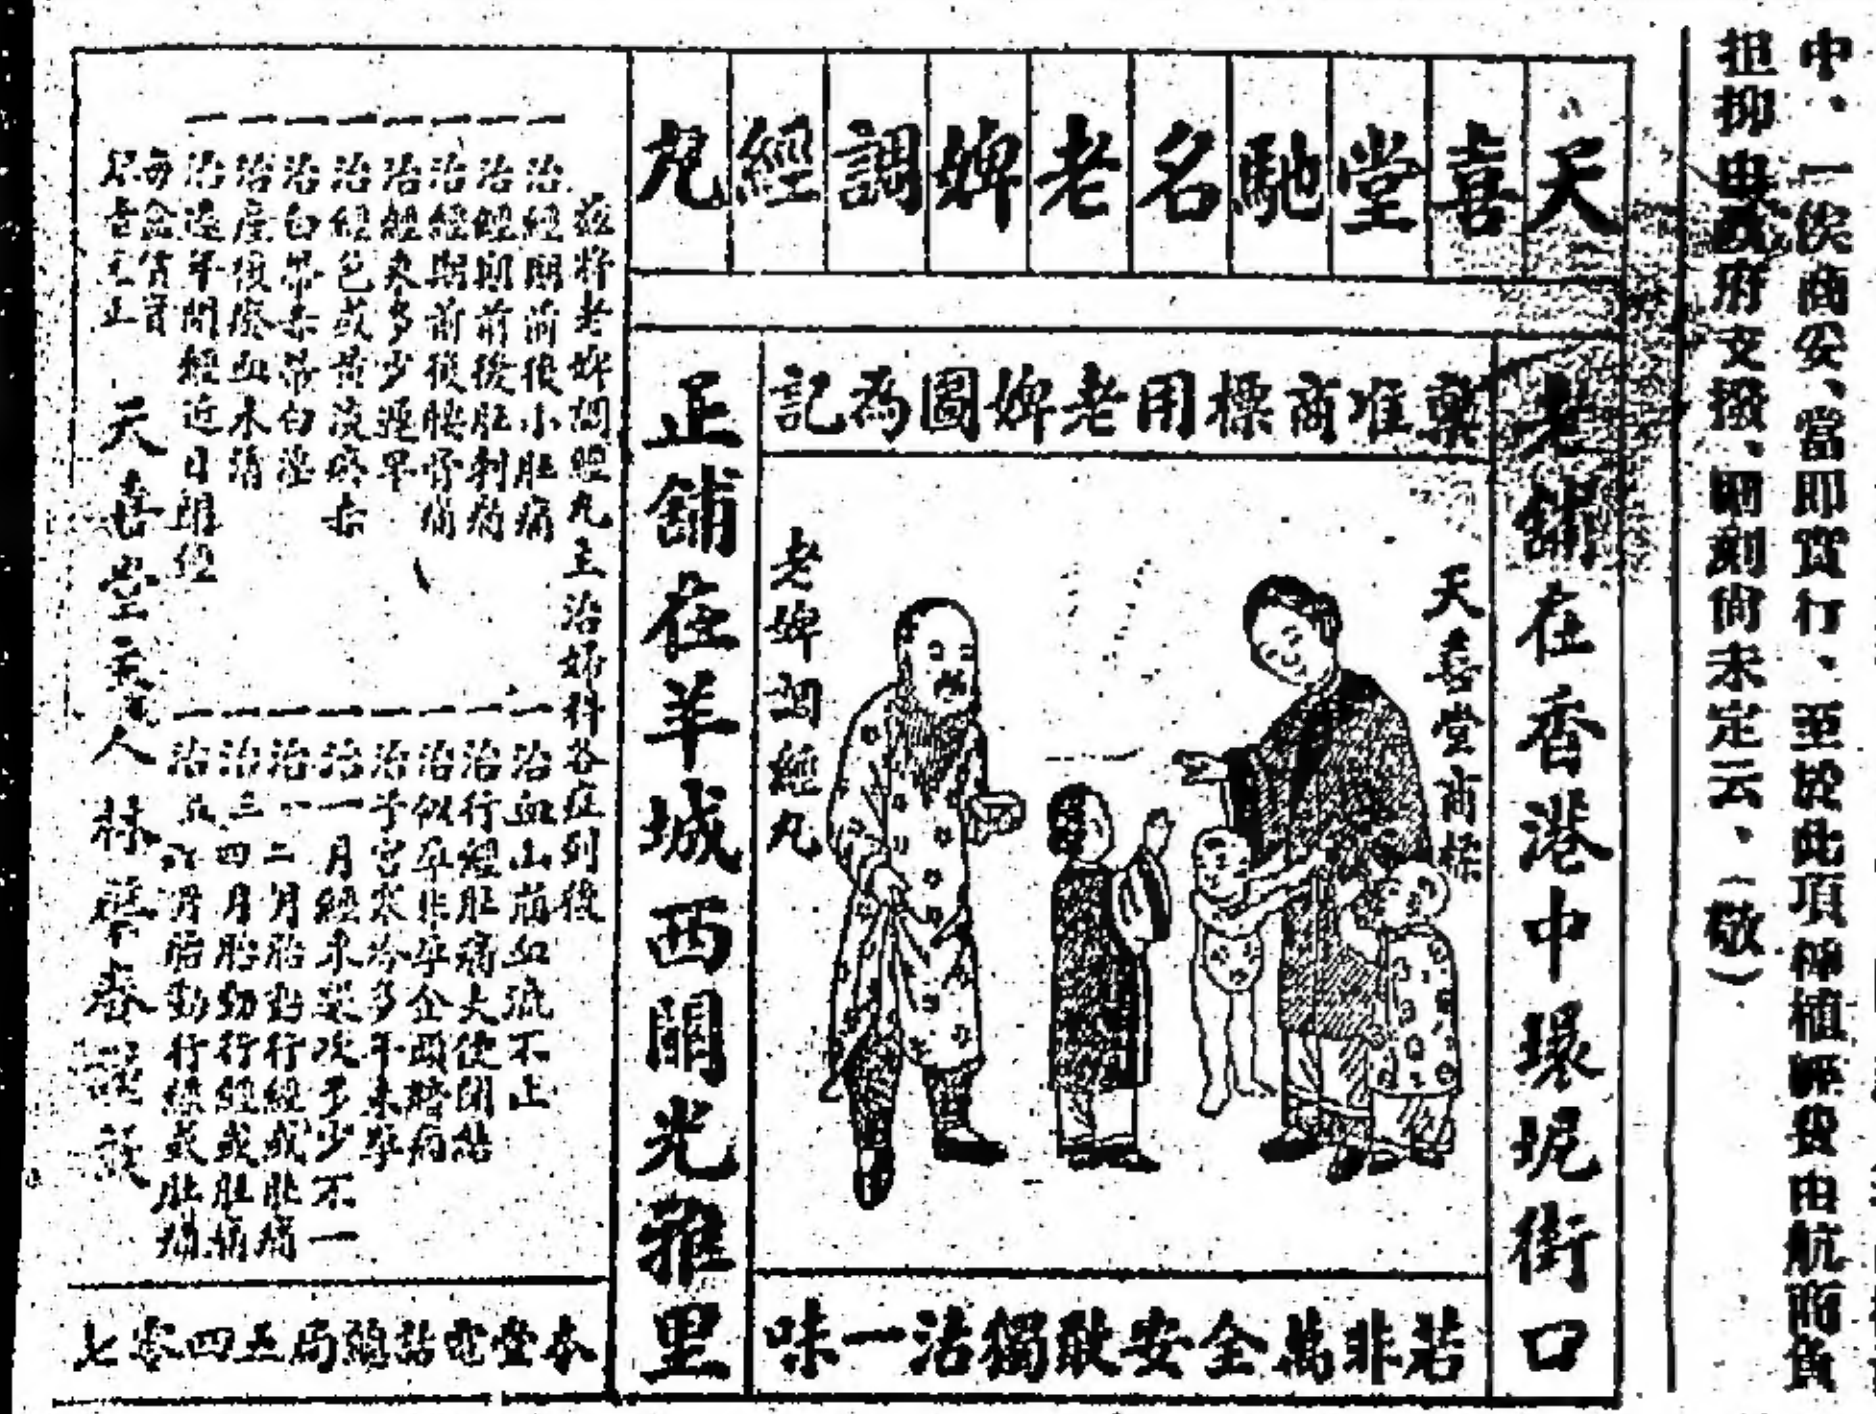 中、一俟商妥、當即實行、至於此項種植經費由航商負
担抑由政府支撥、現刻尚未定云、（敬）
天喜堂馳名老婢調經丸
老舖在香港中環坭街口
稟准商標用老婢圖為記
天喜堂商標
老婢調經丸
若非萬全安敢獨沽一味
正舖在羊城西關光雅里
茲將老婢調經丸主治婦科各症列後
一治經期前後小肚痛
一治經期前後肚刺痛
一治經期前後腰骨痛
一治經來多少遲早
一治經色或黃淡瘀赤
一治白帶赤帶白淫
一治產後瘀血水滯
一治遠年閉經近日閉經
一治血山崩血流不止
一治行經肚痛大便閉結
一治似孕非孕企頭暗病
一治子宮寒冷多年未孕
一治一月經來幾次多少不一
一治一二月胎動行經或肚痛
一治三四月胎動行經或肚痛
一治五六月胎動行經或肚痛
每盒貨實
天喜堂主人林
本堂電話西關局五四零七